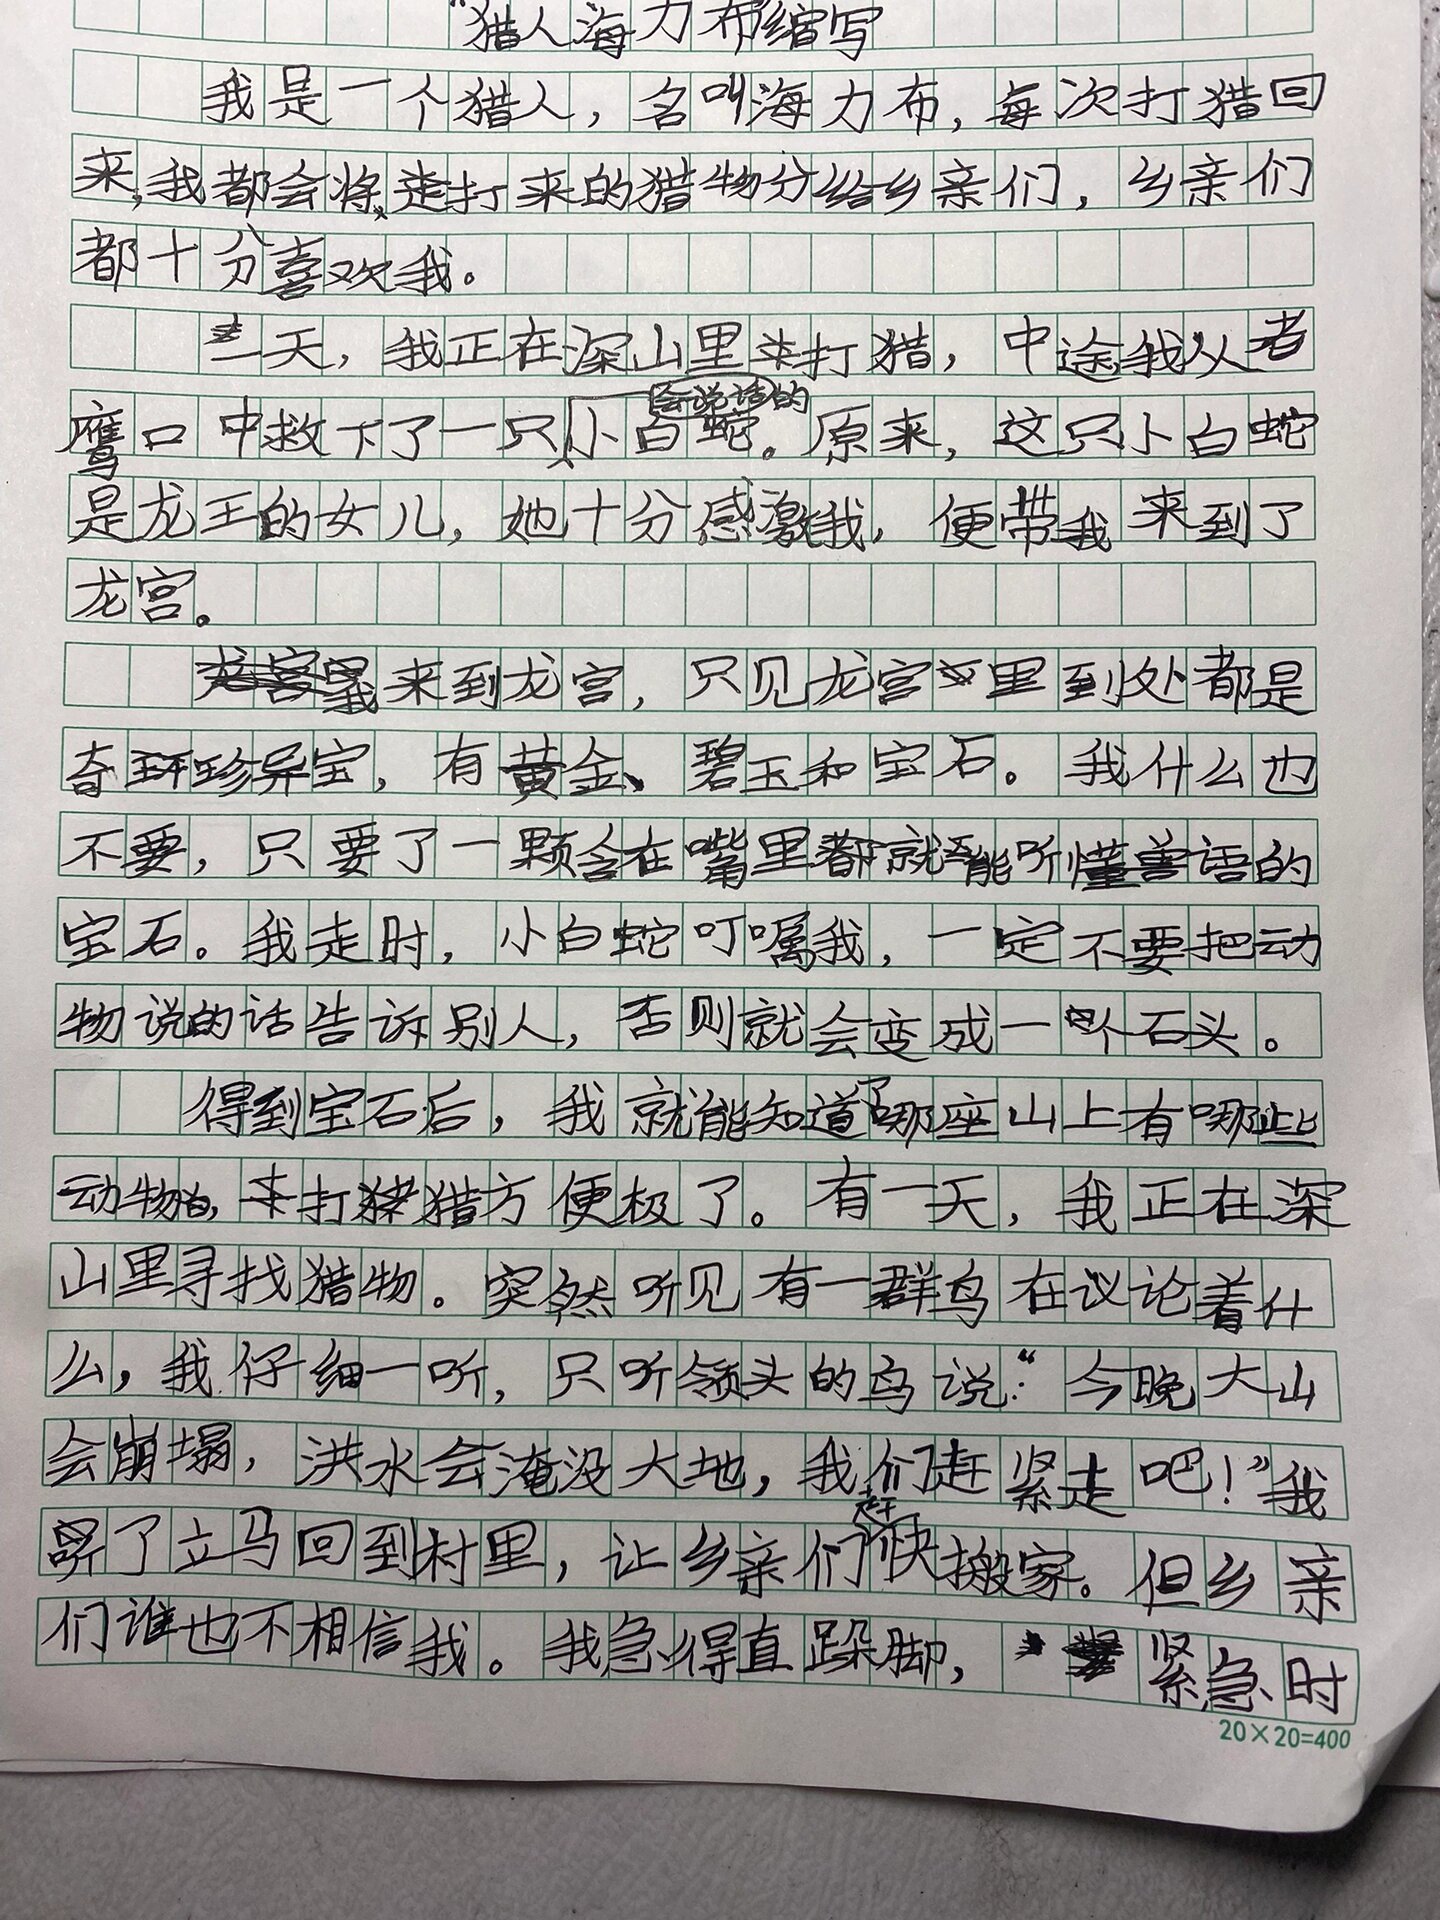 "猎人海力布缩写
我是一个猎人，名叫海力布，每次打猎回
来，我都会将打来的猎物分给乡亲们，乡亲们
都十分喜欢我。
一天，我正在深山里打猎，中途我从老
鹰口中救下了一只会说话的小白蛇。原来，这只小白蛇
是龙王的女儿，她十分感激我，便带我来到了
龙宫。
来到龙宫，只见龙宫里到处都是
奇珍异宝，有黄金、碧玉和宝石。我什么也
不要，只要了一颗含在嘴里就能听懂兽语的
宝石。我走时，小白蛇叮嘱我，一定不要把动
物说的话告诉别人，否则就会变成一个石头。
得到宝石后，我就能知道了哪座山上有哪些
动物，打猎方便极了。有一天，我正在深
山里寻找猎物。突然听见有一群鸟在议论着什
么，我仔细一听，只听领头的鸟说："今晚大山
会崩塌，洪水会淹没大地，我们赶紧走吧！"我
听了立马回到村里，让乡亲们赶快搬家。但乡亲
们谁也不相信我。我急得直跺脚，紧急时
20×20=400